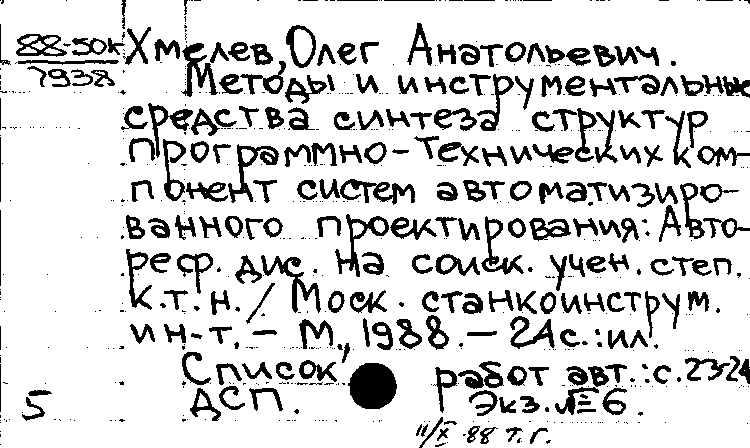 88-50к Хмелев, Олег Анатольевич.
7938 Методы и инструментальные
средства синтеза структур
программно-технических ком-
понент систем автоматизиро-
ванного проектирования: Авто-
реф. дис. на соиск. учен. степ.
к.т.н. / Моск. станкоинструм.
ин-т. – М., 1988. – 24 с.: ил.
Список работ авт.: с. 23-24
5 ДСП. Экз. № 6.
11/X 88 т. г.